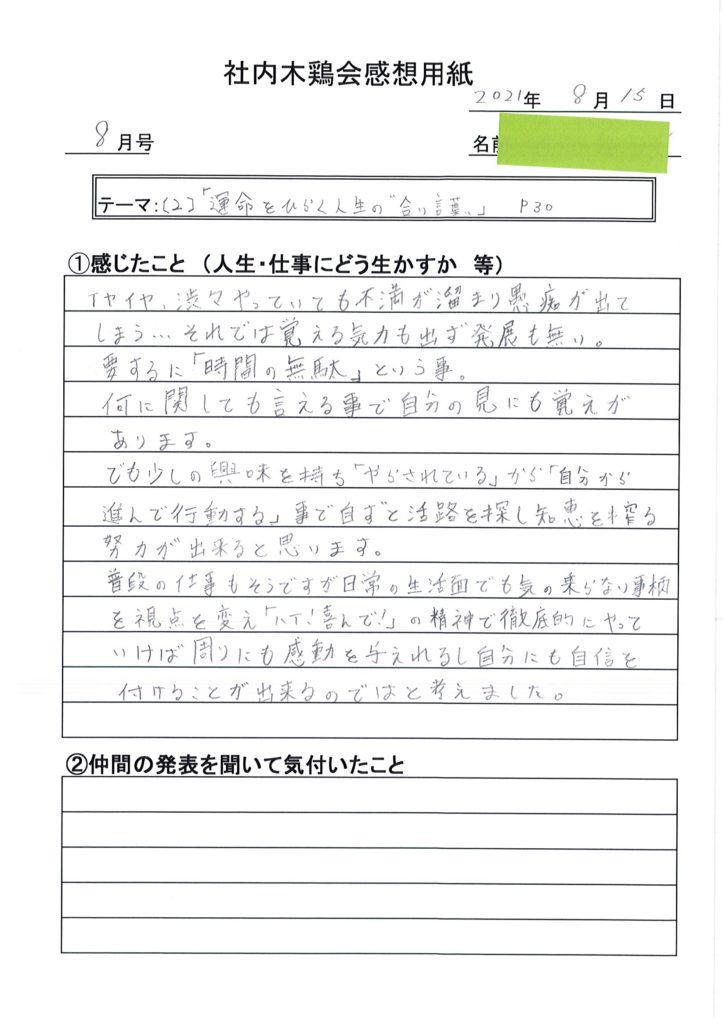 社内木鶏会感想用紙
2021年 8月15日
8月号
名前
テーマ:(2)「運命をひらく人生の"合い言葉"」 P30
①感じたこと (人生・仕事にどう生かすか 等)
イヤイヤ、渋々やっていても不満が溜まり愚痴が出て
しまう…それでは覚える気力も出ず発展も無い。
要するに「時間の無駄」という事。
何に関しても言える事で自分の見にも覚えが
あります。
でも少しの興味を持ち「やらされている」から「自分から
進んで行動する」事で自ずと活路を探し知恵を搾る
努力が出来ると思います。
普段の仕事もそうですが日常の生活面でも気の乗らない事柄
を視点を変え「ハイ!喜んで!」の精神で徹底的にやって
いけば周りにも感動を与えれるし自分にも自信を
付けることが出来るのではと考えました。
②仲間の発表を聞いて気付いたこと